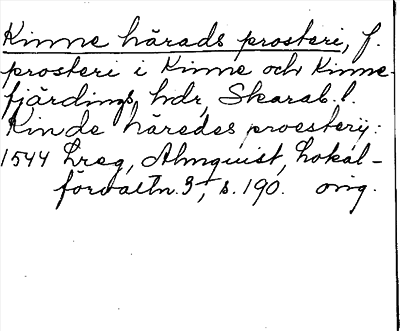 Kinne härads prosteri, f.
prosteri i Kinne och Kinne-
fjärdings hdr, Skarab.l.
Kinde häredes proestery:
1544 Lreg, Almquist, Lokal-
förvaltn. 3, s. 190. orig.